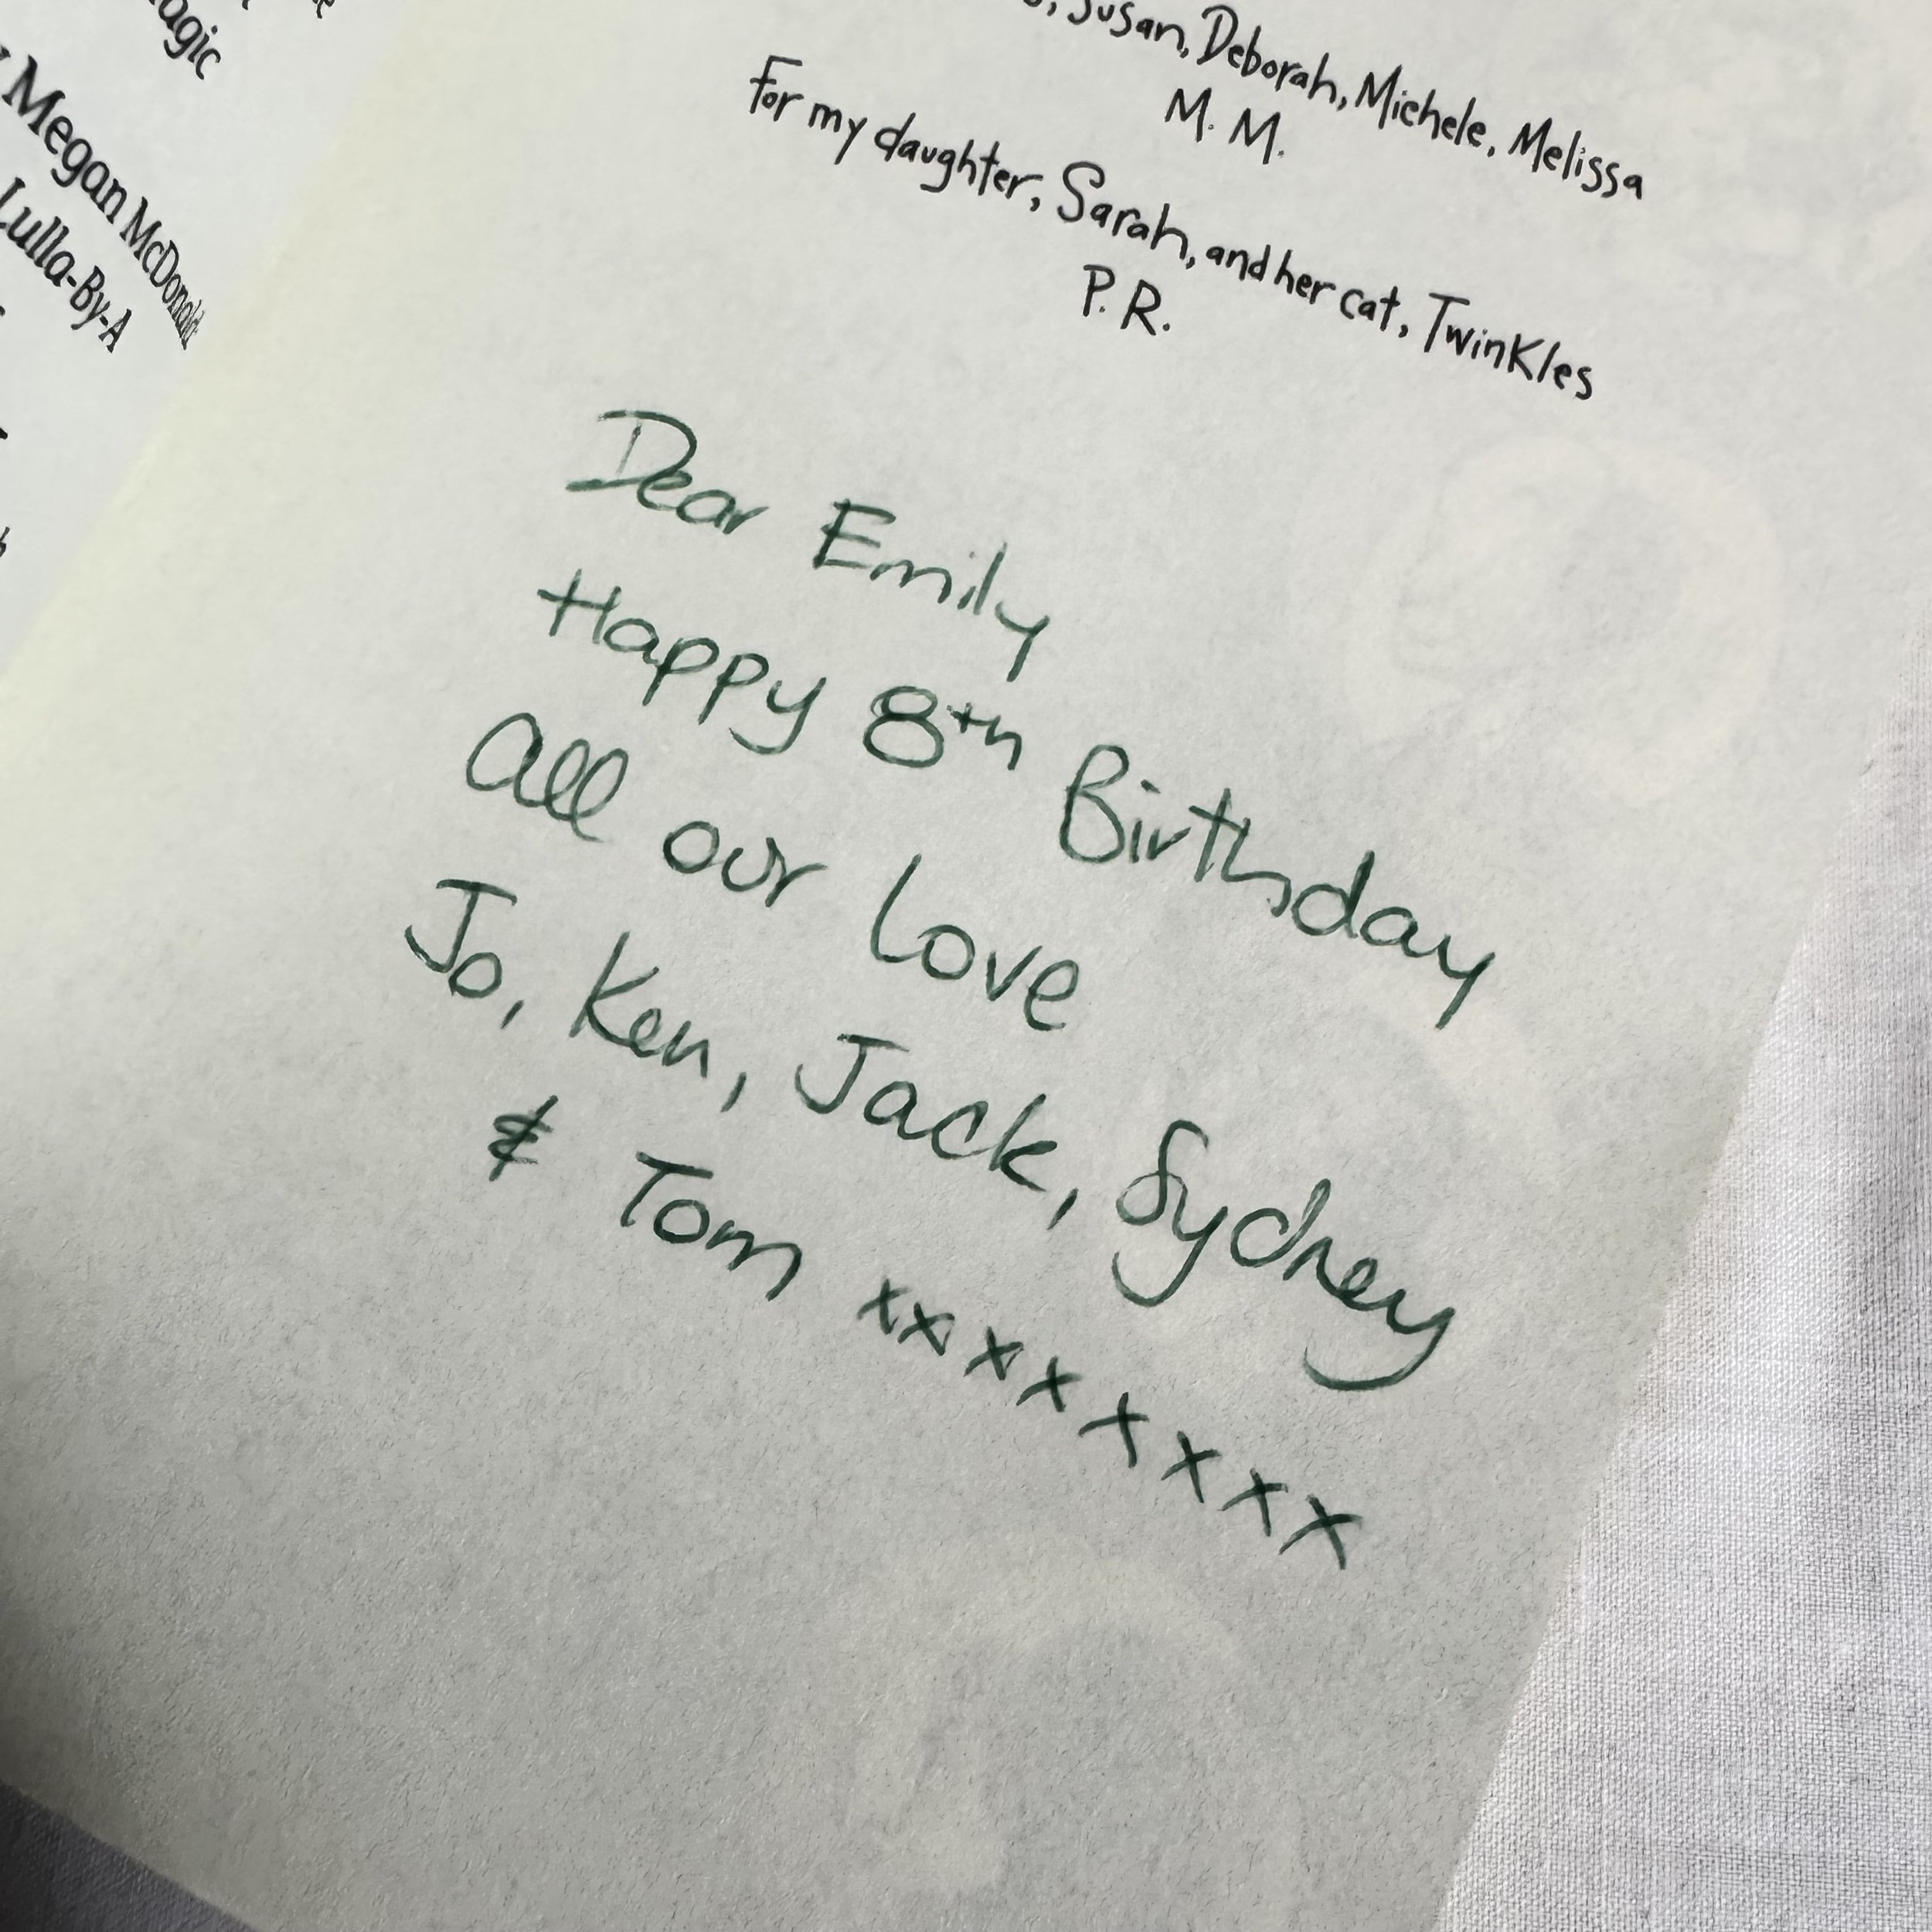 agic
Megan McDonald
Lulla-By-A
Susan, Deborah, Michele, Melissa
M. M.
For my daughter, Sarah, and her cat, Twinkles
P. R.
Dear Emily
Happy 8th Birthday
All our love
Jo, Ken, Jack, Sydney
& Tom xxxxxxxx